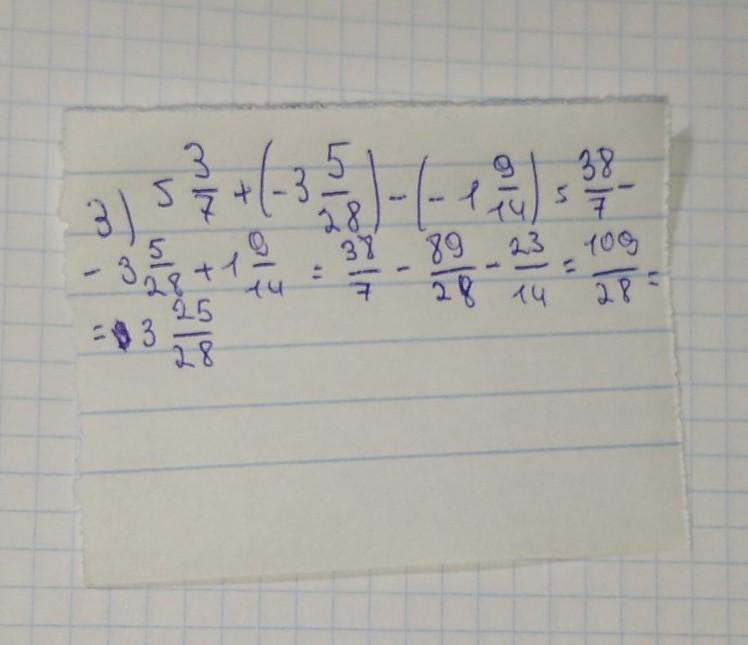 3) 5 3/7 + (-3 5/28) - (-1 9/14) = 38/7 -
- 3 5/28 + 1 9/14 = 38/7 - 89/28 - 23/14 = 109/28 =
= 3 25/28